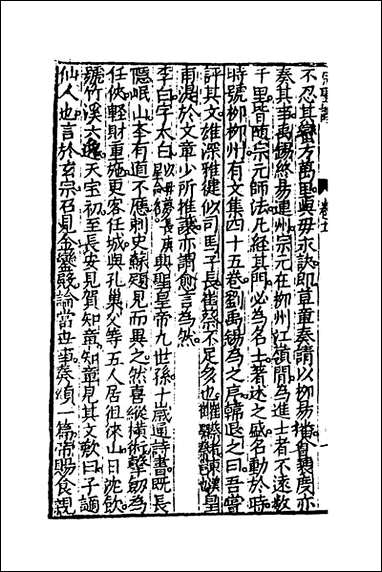 不忍其窮方萬里與母永訣即草童奏請以柳易播會裴度亦
奏其事禹錫終易連州宗元在柳州江嶺間為進士者不遠數
千里皆隨宗元師法凡經其門必為名士著述之盛名動於時
時號柳柳州有文集四十五卷劉禹錫為之序韓退之曰吾嘗
評其文雄深雅健似司馬子長崔蔡不足多也皇
甫湜於文章少所推讓亦謂愈言為然
李白字太白興聖皇帝九世孫十歲通詩書既長
隱岷山李有道不應刺史蘇頲見而異之然喜縱橫術擊劒為
任俠輕財重施更客任城與孔巢父等五人居徂徠山日沈飲
號竹溪六逸天寶初至長安見賀知章知章見其文歎曰子謫
仙人也言於玄宗召見金鑾殿論當世事奏頌一篇帝賜食親